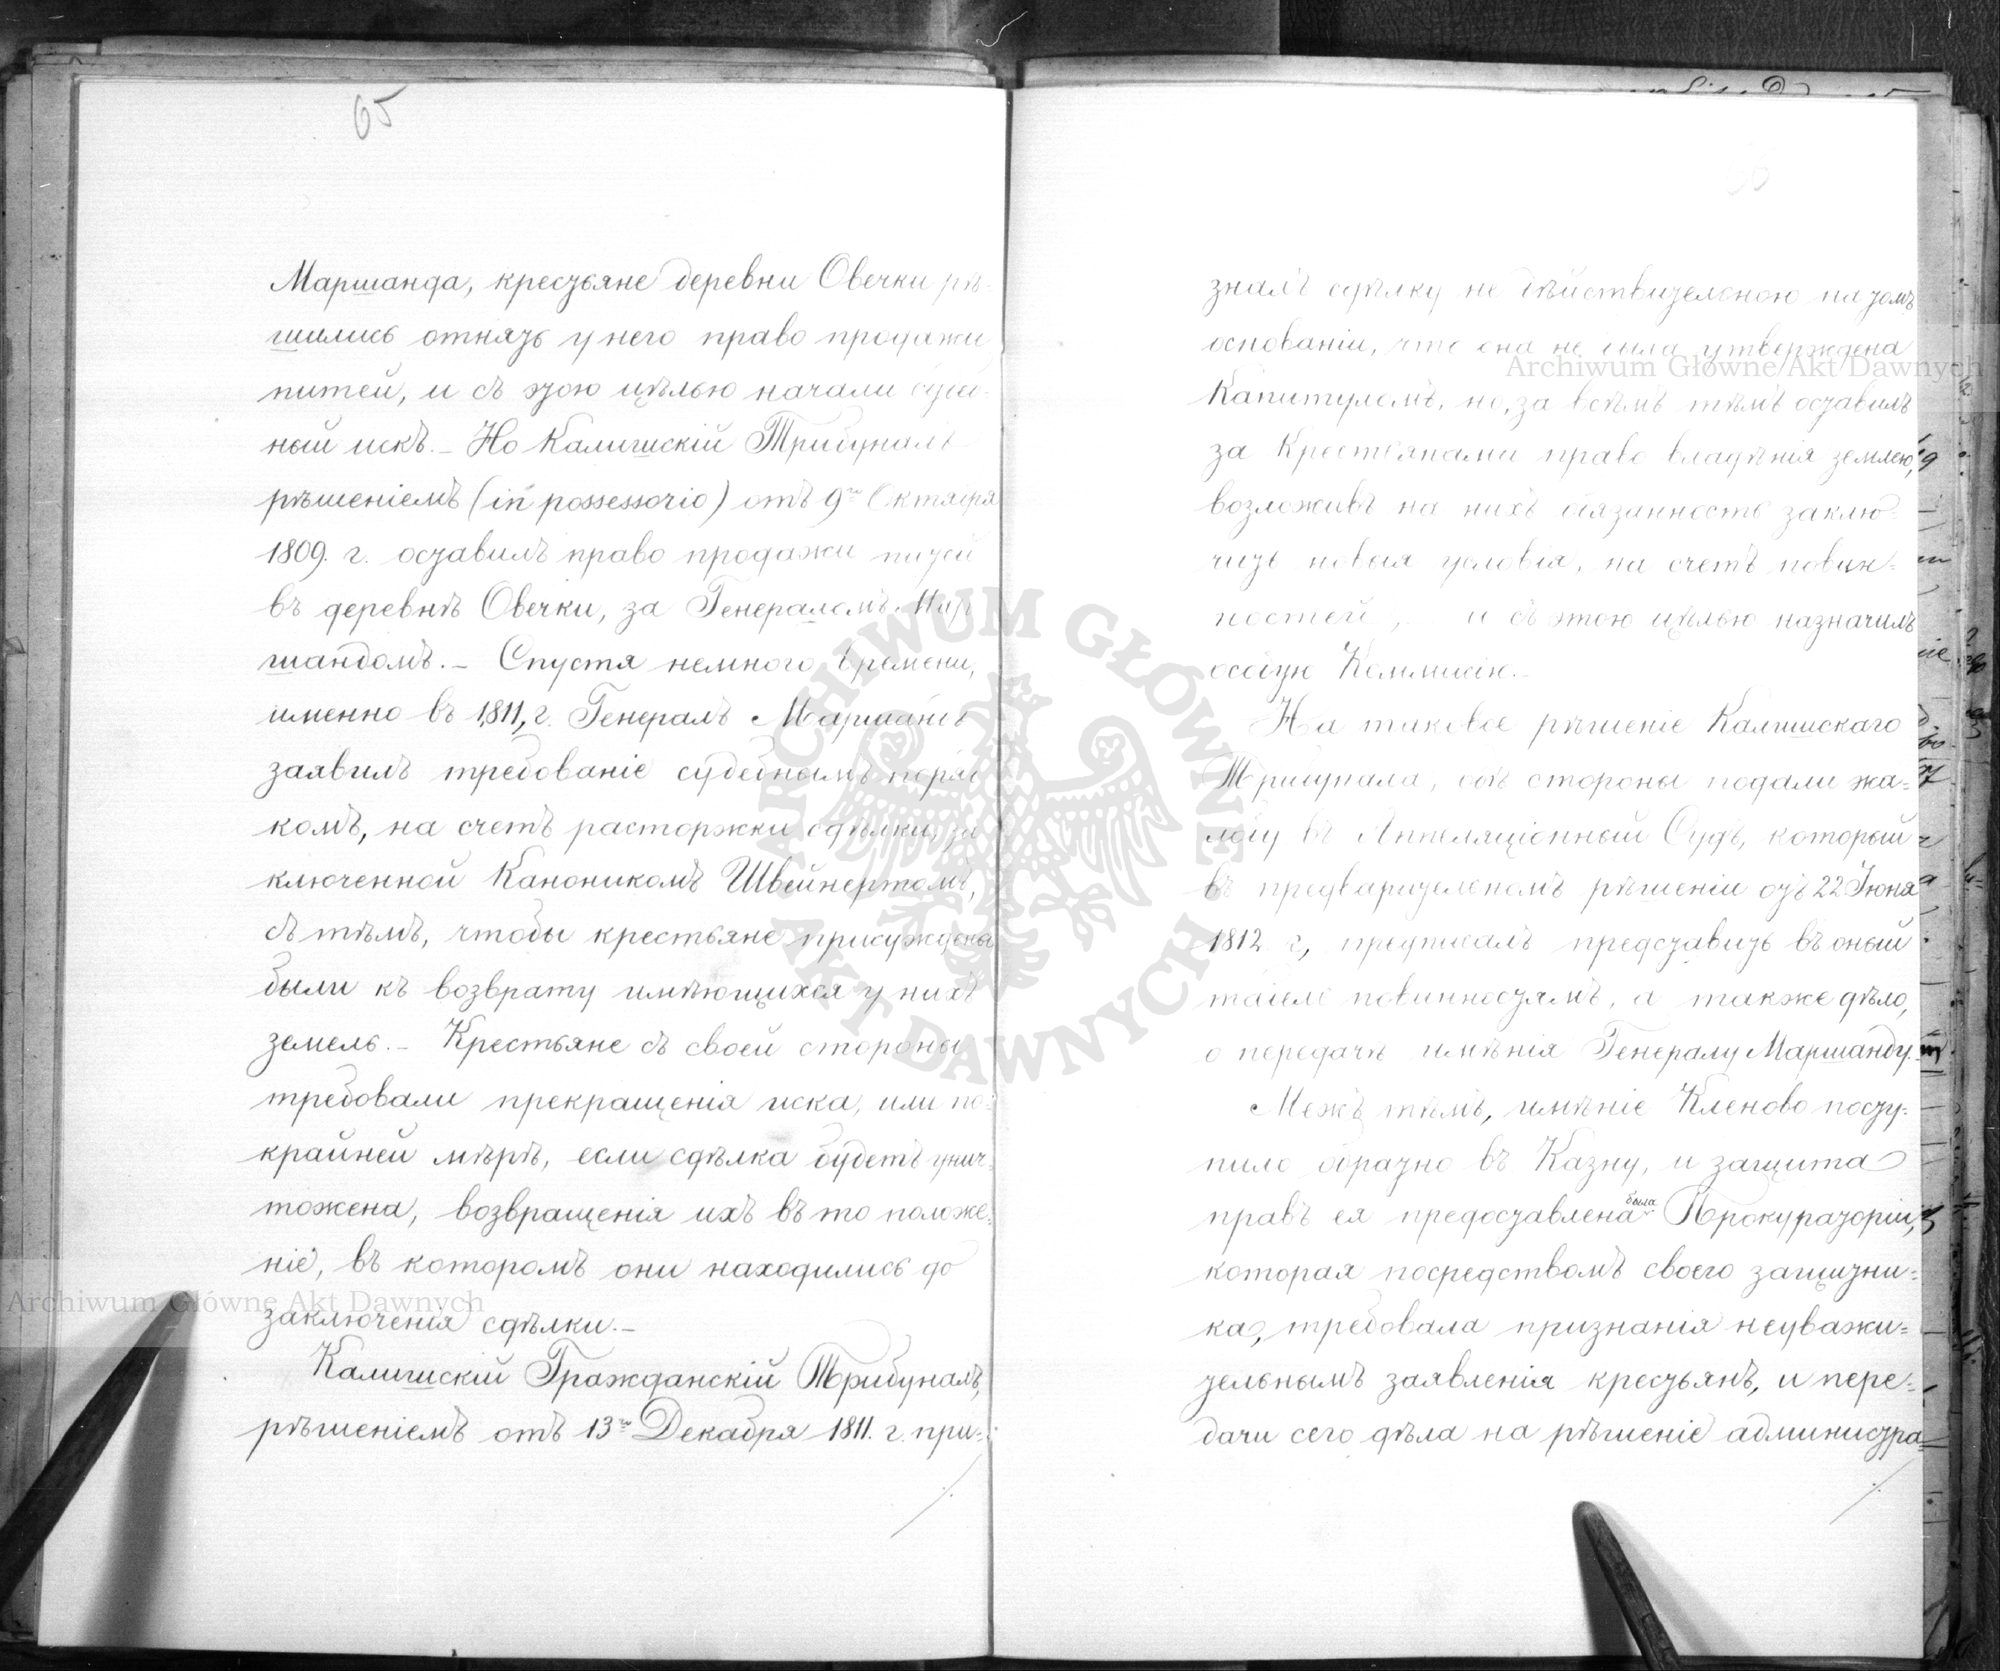 65
Маршанда, крестьяне деревни Овечки рѣ-
шились отнять у него право продажи
питей, и съ этою цѣлью начали судеб-
ный искъ. – Но Калишскій Трибуналъ
рѣшеніемъ (in possessorio) отъ 9го Октября
1809. г. оставилъ право продажи питей
въ деревнѣ Овечки, за Генераломъ Мар-
шандомъ. – Спустя немного времени,
именно въ 1811, г. Генералъ Маршандъ
заявилъ требованіе судебнымъ поряд-
комъ, на счетъ расторжки сдѣлки, за
ключенной Каноникомъ Швейнертомъ,
съ тѣмъ, чтобы крестьяне присуждены
были къ возврату имѣющихся у нихъ
земель. – Крестьяне съ своей стороны
требовали прекращенія иска, или по
крайней мѣрѣ, если сдѣлка будетъ унич-
тожена, возвращенія ихъ въ то положе-
ніе, въ которомъ они находились до
заключенія сдѣлки. –
Калишскій Гражданскій Трибуналъ,
рѣшеніемъ отъ 13го Декабря 1811. г. при-
66
зналъ сдѣлку не дѣйствительною на томъ
основаніи, что она не была утверждена
Капитуломъ, но, за всѣмъ тѣмъ оставилъ
за Крестьянами право владѣнія землею,
возложивъ на нихъ обязанность заклю-
чить новыя условія, на счетъ повин-
ностей, и съ этою цѣлью назначилъ
особую Коммисію. –
На таковое рѣшеніе Калишскаго
Трибунала, обѣ стороны подали жа-
лобу въ Аппеляціонный Судъ, который
въ предварительномъ рѣшеніи отъ 22 Іюня
1812 г, предписалъ представить въ оный
табель повинностямъ, а также дѣло,
о передачѣ имѣнія Генералу Маршанду.
Межъ тѣмъ, имѣніе Кленово посту-
пило обратно въ Казну, и защита
правъ ея предоставлена была Прокураторіи,
которая посредствомъ своего защитни-
ка, требовала признанія неуважи-
тельнымъ заявленія крестьянъ, и пере-
дачи сего дѣла на рѣшеніе администра-
Archiwum Główne Akt Dawnych
Archiwum Główne Akt Dawnych
ARCHIWUM GŁÓWNE AKT DAWNYCH